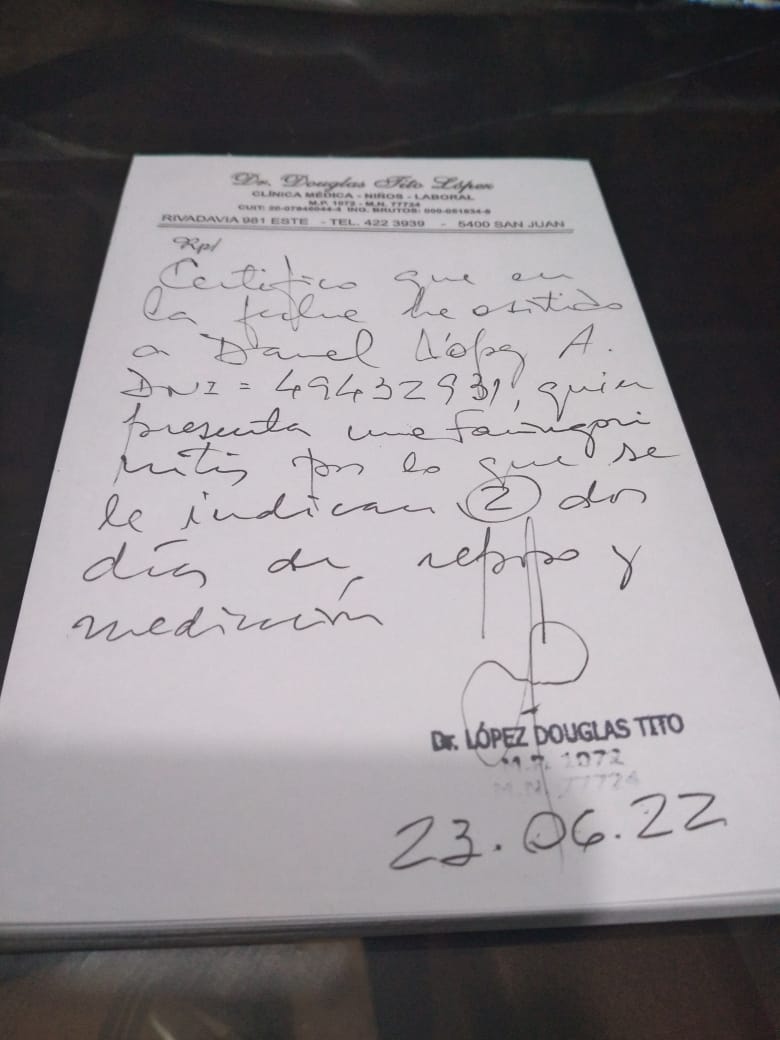 Dr. Douglas Tito López
CLÍNICA MÉDICA - NIÑOS - LABORAL
M.P. 1072 - M.N. 77724
RIVADAVIA 981 ESTE - TEL. 422 3939 - 5400 SAN JUAN
Rp/
Certifico que en
la fecha he asistido
a Daniel López A.
DNI = 49432931, quien
presenta una faringori
nitis por lo que se
le indican 2 dos
días de reposo y
medicación
Dr. LÓPEZ DOUGLAS TITO
M.P. 1072
M.N. 77724
23.06.22